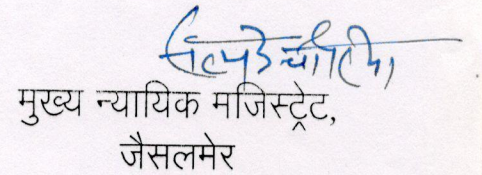 मुख्य न्यायिक मजिस्ट्रेट,
जैसलमेर